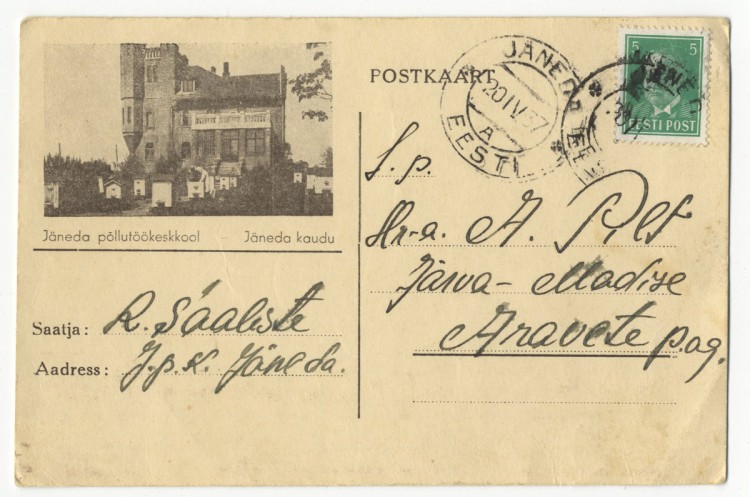 POSTKAART
JÄNEDA
20 IV 37
A
EESTI
5 5
EESTI POST
Jäneda põllutöökeskkool – Jäneda kaudu
Saatja: R. Saaliste
Aadress: J.p.k. Jäneda.
S. p.
Hr-a. A. Pilt
Järva-Madise
Aravete pag.